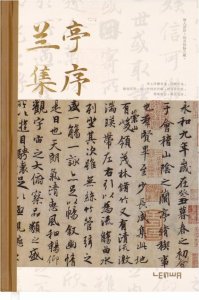 兰亭集序
永和九年歲在癸丑暮春之初會
于會稽山陰之蘭亭脩禊事
也群賢畢至少長咸集此地
有崇山峻領茂林脩竹又有清流激
湍暎帶左右引以為流觴曲水
列坐其次雖無絲竹管弦之
盛一觴一詠亦足以暢叙幽情
是日也天朗氣清惠風和暢仰
觀宇宙之大俯察品類之盛